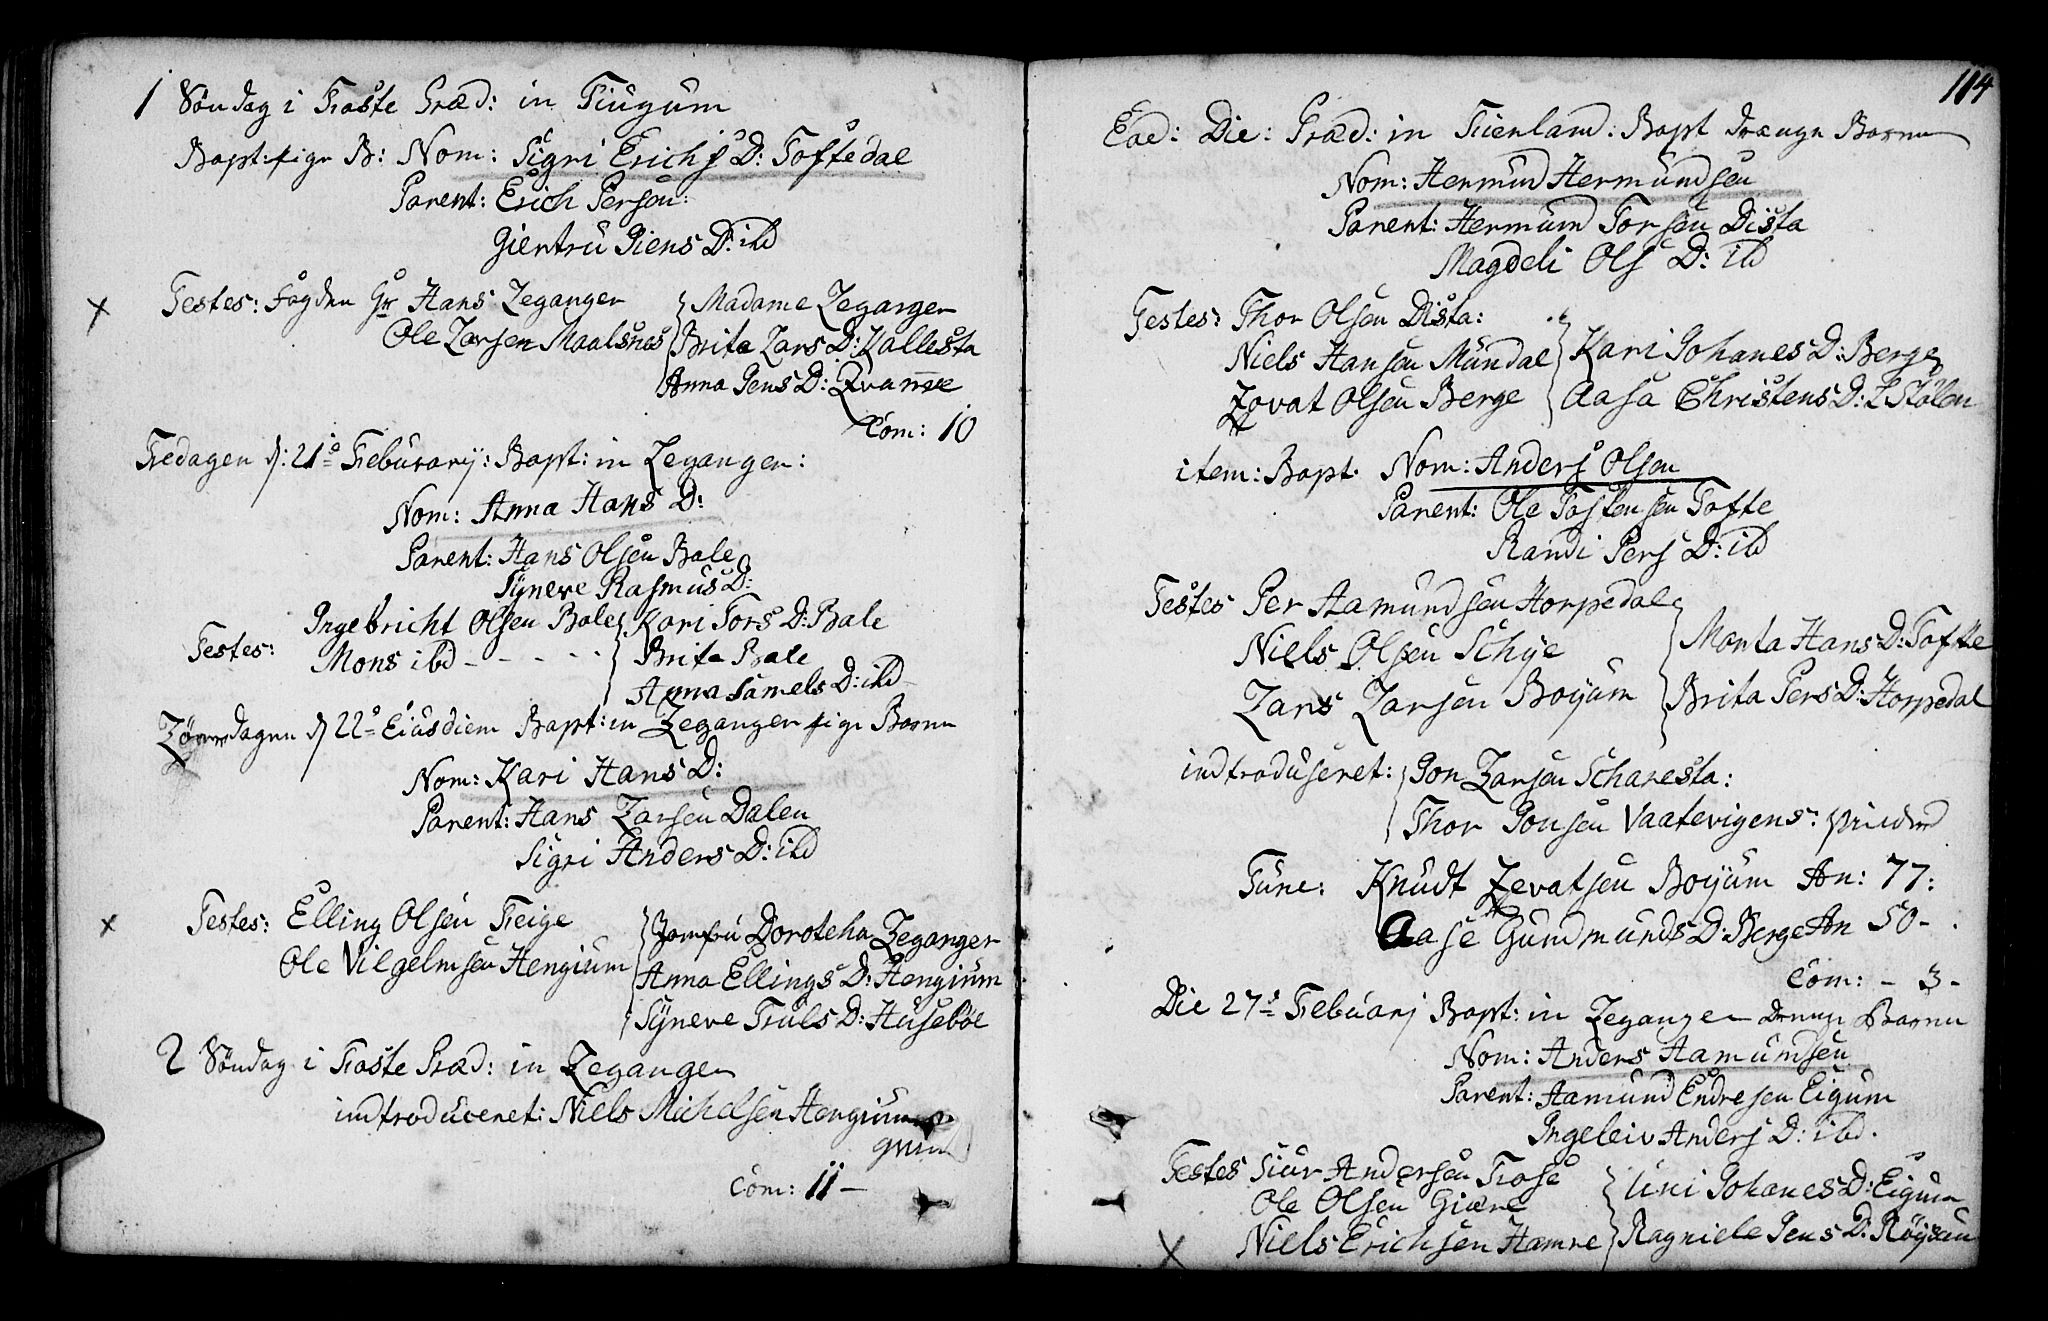 1 Söndag i Faste Præd: in Tiugum
Bapt: pige B: Nom: Sigri Erichs D: Toftedal
Parent: Erich Persen:
Giertru Jens D: ibd
Testes: Fogden Hr Hans Leganger { Madame Leganger
Ole Larsen Maalsnes { Brita Lars D: Kallesta
Anna Jens D: Quamme
Com: 10
Fredagen d: 21 Februarij: Bapt: in Leganger:
Nom: Anna Hans D:
Parent: Hans Olsen Bale
Syneve Rasmus D:
Testes: Ingebricht Olsen Bale { Kari Tors D: Bale
Mons ibd - - - - { Brita Bale
Anna Samels D: ibd
Löverdagen d 22 Eiusdiem Bapt: in Leganger pige Barn
Nom: Kari Hans D:
Parent: Hans Larsen Dalen
Sigri Anders D: ibd
Testes: Elling Olsen Feige { Jomfru Doroteha Leganger
Ole Vilgelmsen Hengium { Anna Ellings D: Hengium
{ Syneve Truls D: Husebøe
2 Söndag i Faste Præd: in Leganger
indtroduceret: Niels Michelsen Hengium
Com: 11 -
114
Ead: Die: Præd: in Fierland: Bapt drænge Barn
Nom: Hermund Hermundsen
Parent: Hermund Torsen Dista
Magdeli Ols D: ibd
Testes: Thor Olsen Dista:
Niels Hansen Mundal { Kari Johanes D: Berge
Lovat Olsen Berge { Aasa Christens D: Stölen
item: Bapt. Nom: Anders Olsen
Parent: Ole Tostensen Tofte
Randi Pers D: ibd
Testes Per Aamundsen Horpedal
Niels Olsen Schye { Marita Hans D: Tofte
Lars Larsen Boyum { Brita Pers D: Horpedal
indtroduseret: { Jon Larsen Scharesta:
{ Thor Jonsen Vaatevigens:
Fune: Knudt Levatsen Boyum An: 77:
Aase Gundmunds D: Berge An 50-.
Com: - 3 -
Die 27 Februarj Bapt: in Leganger Drenge Barn
Nom: Anders Aamundsen
Parent: Aamund Endresen Eigum
Ingeleiv Anders D: ibd.
Testes Siur Andersen Frose { Uni Johanes D: Eigum
Ole Olsen Giære
Niels Erichsen Hamre { Ragniele Jens D: Röysum